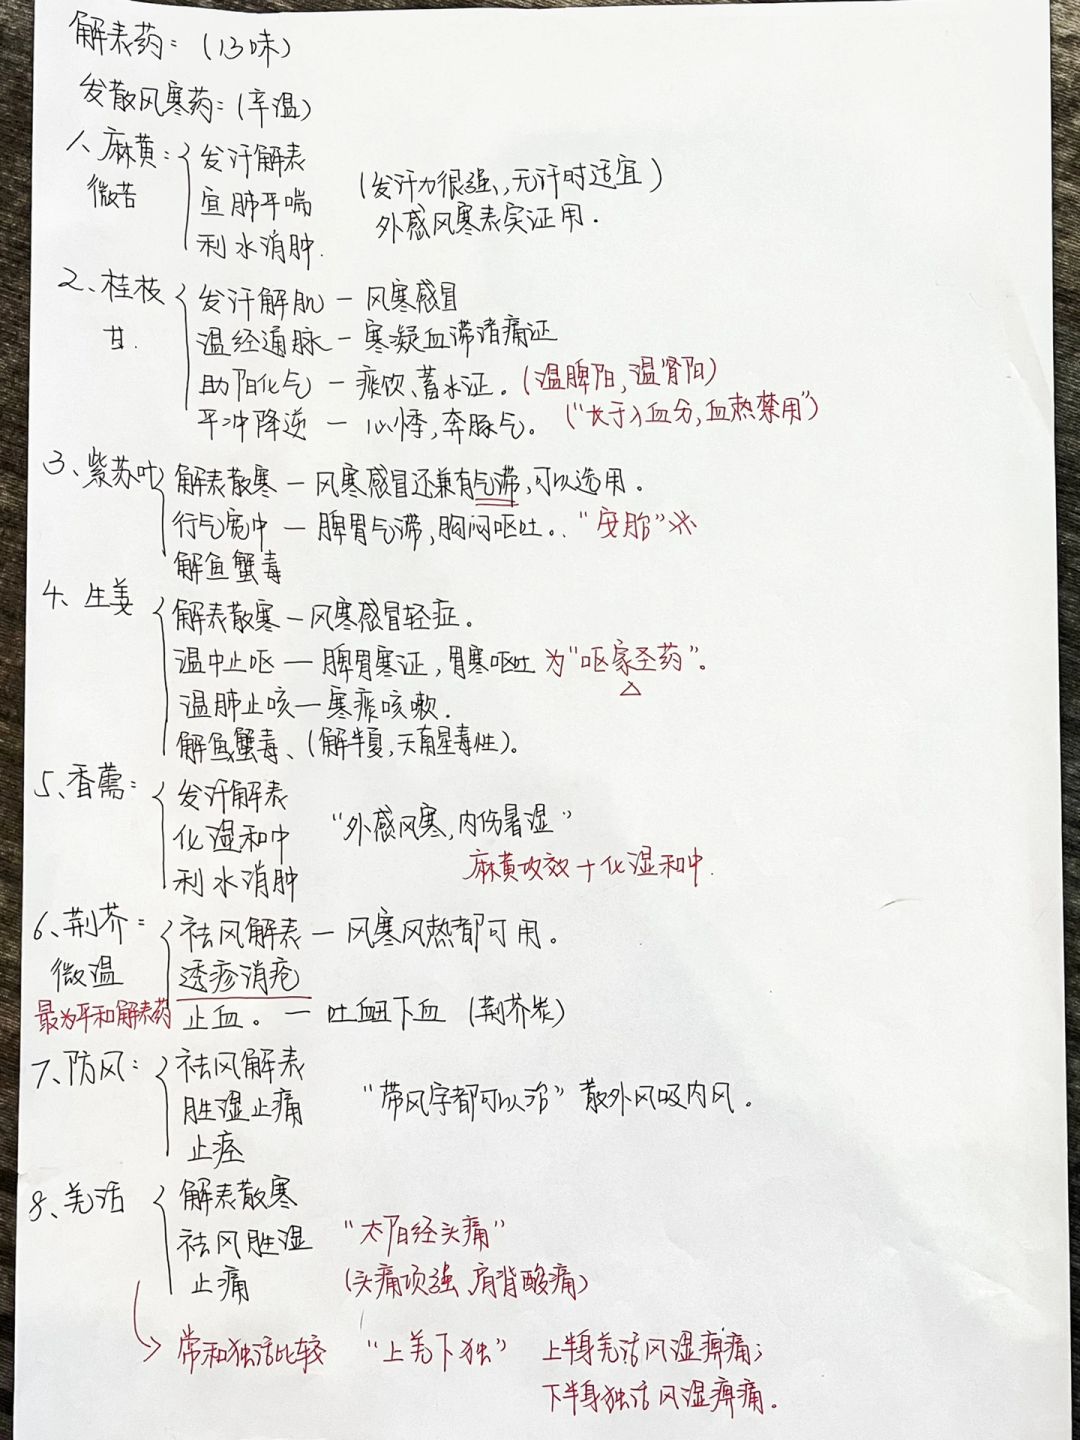 解表药：(13味)
发散风寒药：(辛温)
1、麻黄： 发汗解表
微苦 宣肺平喘 (发汗力很强、，无汗时适宜)
利水消肿. 外感风寒表实证用.
2、桂枝 发汗解肌 — 风寒感冒
甘. 温经通脉 — 寒凝血滞诸痛证
助阳化气 — 痰饮、蓄水证. (温脾阳, 温肾阳)
平冲降逆 — 心悸, 奔豚气。 ("长于入血分, 血热禁用")
3、紫苏叶 解表散寒 — 风寒感冒还兼有气滞, 可以选用.
行气宽中 — 脾胃气滞, 胸闷呕吐. "安胎" ※
解鱼蟹毒
4、生姜 解表散寒 — 风寒感冒轻症.
温中止呕 — 脾胃寒证, 胃寒呕吐 为"呕家圣药"。
温肺止咳 — 寒痰咳嗽.
解鱼蟹毒、(解半夏, 天南星毒性).
5、香薷： 发汗解表
化湿和中 "外感风寒, 内伤暑湿"
利水消肿 麻黄功效 + 化湿和中.
6、荆芥： 祛风解表 — 风寒风热都可用。
微温 透疹消疮
最为平和解表药 止血。 — 吐衄下血 (荆芥炭)
7、防风： 祛风解表
胜湿止痛 "带风字都可以治" 散外风吸内风.
止痉
8、羌活 解表散寒
祛风胜湿 "太阳经头痛"
止痛 (头痛项强、肩背酸痛)
常和独活比较 "上羌下独" 上半身羌活风湿痹痛;
下半身独活风湿痹痛.